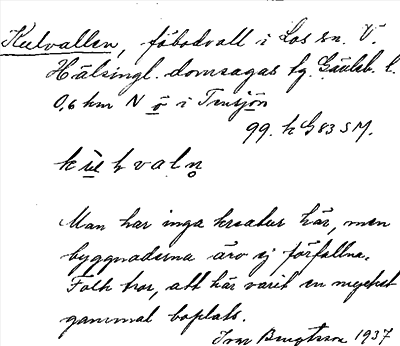 Kulvallen, fäbodvall i Los sn. V.
Hälsingl. domsagas tg. Gävleb. l.
0,6 km N ö i Tensjön
99. k G 83 SM.
Man har inga kreatur här, men
byggnaderna äro ej förfallna.
Folk tror, att här varit en mycket
gammal boplats.
Ivar Bengtsson 1937